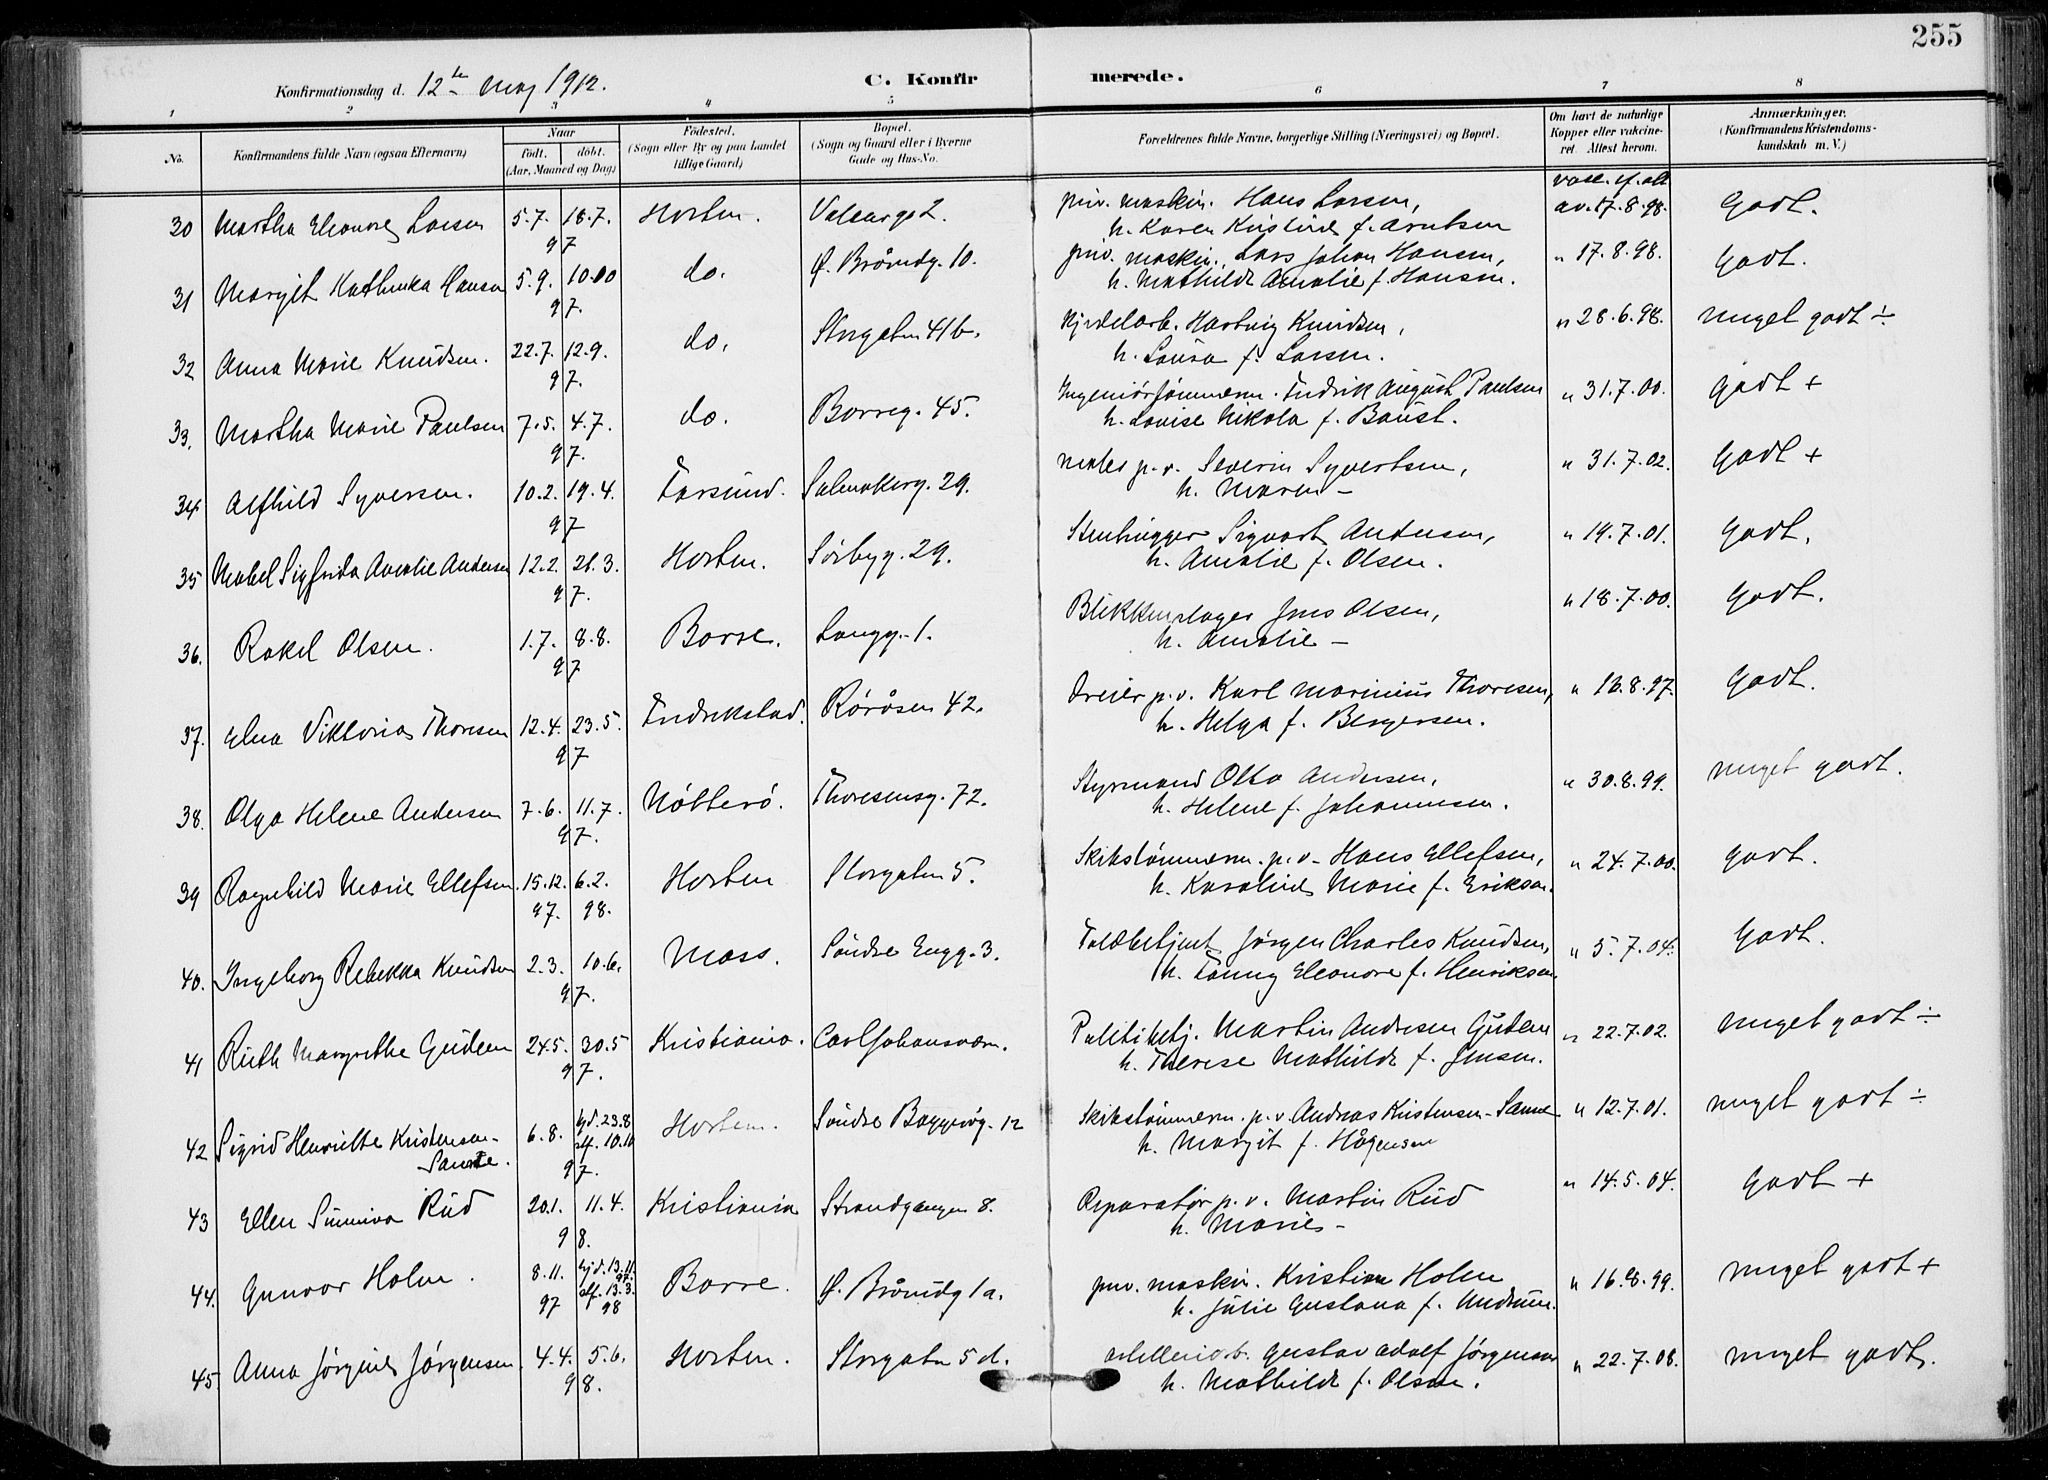 255
Konfirmationsdag d. 12te May 1912.
C. Konfirmerede.
1 2 3 4 5 6 7 8
No.
Konfirmandens fulde Navn (ogsaa Efternavn)
Naar
født. døbt.
(Aar, Maaned og Dag)
Fødested.
(Sogn eller By og paa Landet
tillige Gaard)
Bopæl.
(Sogn og Gaard eller i Byerne
Gade og Hus-No.
Forældrenes fulde Navne, borgerlige Stilling (Næringsvei) og Bopæl.
Om havt de naturlige
Kopper eller vakcine-
ret. Attest herom.
Anmærkninger.
(Konfirmandens Kristendoms-
kundskab m. V.)
30 Martha Eleonore Larsen 5.7. 18.7. 97 Horten. 2. priv. maskin. Hans Larsen, av. 17.8.98. Godt.
h. Karen Kristine f. Arntsen
31 Margit Kathinka Hansen 5.9. 10.00 97. do. Ø. Bråtndg. 10. priv. maskin. Lars Johan Hansen, " 17.8.98. Godt.
h. Mathilde Amalie f. Hansen.
32 Anna Marie Knudsen. 22.7. 12.9. 97. do. Storgaten 41b. Hartvig Knudsen, " 28.6.98. meget godt ÷
h. Laura f. Larsen.
33. Martha Marie Paulsen 7.5. 4.7. 97. do. Borreg. 45. Fredrik August Paulsen " 31.7.00. Godt +
h. Lovise Nikola f. Baust.
34 Alfhild Syversen. 10.2. 19.4. 97 Farsund. 29. p.v. Severin Syvertsen, " 31.7.02. Godt +
h. Maren –
35 Mabel Sigfrida Amalie Andersen 12.2. 21.3. 97. Horten. Sørbyg. 29. Stenhugger Sigvart Andersen, " 19.7.01. Godt.
h. Amalie f. Olsen.
36. Rakel Olsen. 1.7. 8.8. 97 Borre. Langg. 1. Blikkenslager Jens Olsen, " 18.7.00. Godt.
h. Amalie –
37. Elna Viktoria Thoresen 12.4. 23.5. 97 Fredrikstad. Røråsen 42. Dreier p.v. Karl Marinius Thoresen, " 18.8.97. Godt.
h. Helga f. Bergersen.
38. Olga Helene Andersen 7.6. 11.7. 97. Nøtterø. Thoresensg. 72. Styrmand Otto Andersen, " 30.8.99. meget godt.
h. Helene f. Johannesen.
39 Ragnhild Marie Ellefsen. 15.12. 97. 6.2. 98. Horten Storgaten 5. Skibstømmerm. p.v. Hans Ellefsen, " 24.7.00. Godt.
h. Karoline Marie f. Eriksen.
40. Ingeborg Rebekka Knudsen 2.3. 10.6. 97. Moss. Søndre Engg. 3. Toldbetjent Jørgen Charles Knudsen, " 5.7.04. Godt.
h. Fanny Eleonore f. Henriksen
41 Ruth Margrethe Gudem 24.5. 30.5 97. Kristiania. Carljohansvern. Politibetj. Martin Andresen Gudem " 22.7.02. meget godt ÷
h. Therese Mathilde f. Jensen.
42 Sigrid Henriette Kristensen- 6.8. hjd. 23.8 stf. 10.10 97. Horten. Søndre 12 Skibstømmerm. p.v. Andreas Kristensen-Sanne " 12.7.01. meget godt ÷
Sanne. h. Margit f. Hågensen
43 Ellen Sunniva Rud 20.1. 11.4. 98. Kristiania Strandgangen 8. Reparatør p.v. Martin Rud " 14.5.04. Godt +
h. Marie –
44. Gunvor Holm. 8.11. 97 hjd. 13.11. 97. stf. 13.3. 98 Borre. 1a. priv. maskin. Kristian Holm " 16.8.99. meget godt +
h. Julie Gustava f.
45 Anna Jørgine Jørgensen. 4.4. 5.6. 98. Horten. Storgaten 5d. Gustav Adolf Jørgensen " 22.7.08. meget godt.
h. Mathilde f. Olsen.